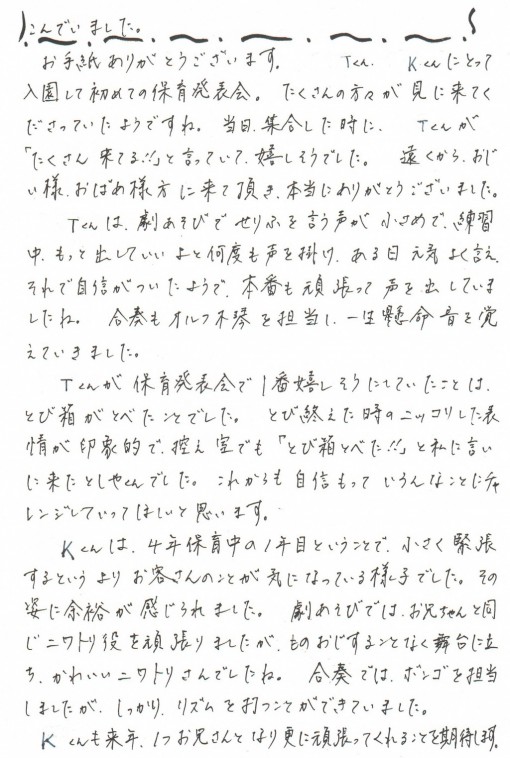 こんでいました。
お手紙ありがとうございます。 Tくん、Kくんにとって
入園して初めての保育発表会。たくさんの方々が見に来てく
ださっていたようですね。当日、集合した時に、Tくんが
「たくさん来てる!!」と言っていて、嬉しそうでした。遠くから、おじ
い様、おばあ様方に来て頂き、本当にありがとうございました。
Tくんは、劇あそびでせりふを言う声が小さめで、練習
中、もっと出していいよと何度も声を掛け、ある日元気よく言え、
それで自信がついたようで、本番も頑張って声を出していま
したね。合奏もオルフ木琴を担当し、一生懸命音を覚
えていきました。
Tくんが保育発表会で1番嬉しそうにしていたことは、
とび箱がとべたことでした。とび終えた時のニッコリした表
情が印象的で、控え室でも「とび箱とべた!!」と私に言い
に来たとしやくんでした。これからも自信もっていろんなことにチャ
レンジしていってほしいと思います。
Kくんは、4年保育中の1年目ということで、小さく緊張
するというよりお客さんのことが気になっている様子でした。その
姿に余裕が感じられました。劇あそびでは、お兄ちゃんと同
じニワトリ役を頑張りましたが、ものおじすることなく舞台に立
ち、かわいいニワトリさんでしたね。合奏では、ボンゴを担当
しましたが、しっかり、リズムを打つことができていました。
Kくんも来年、1つお兄さんとなり更に頑張ってくれることを期待します。